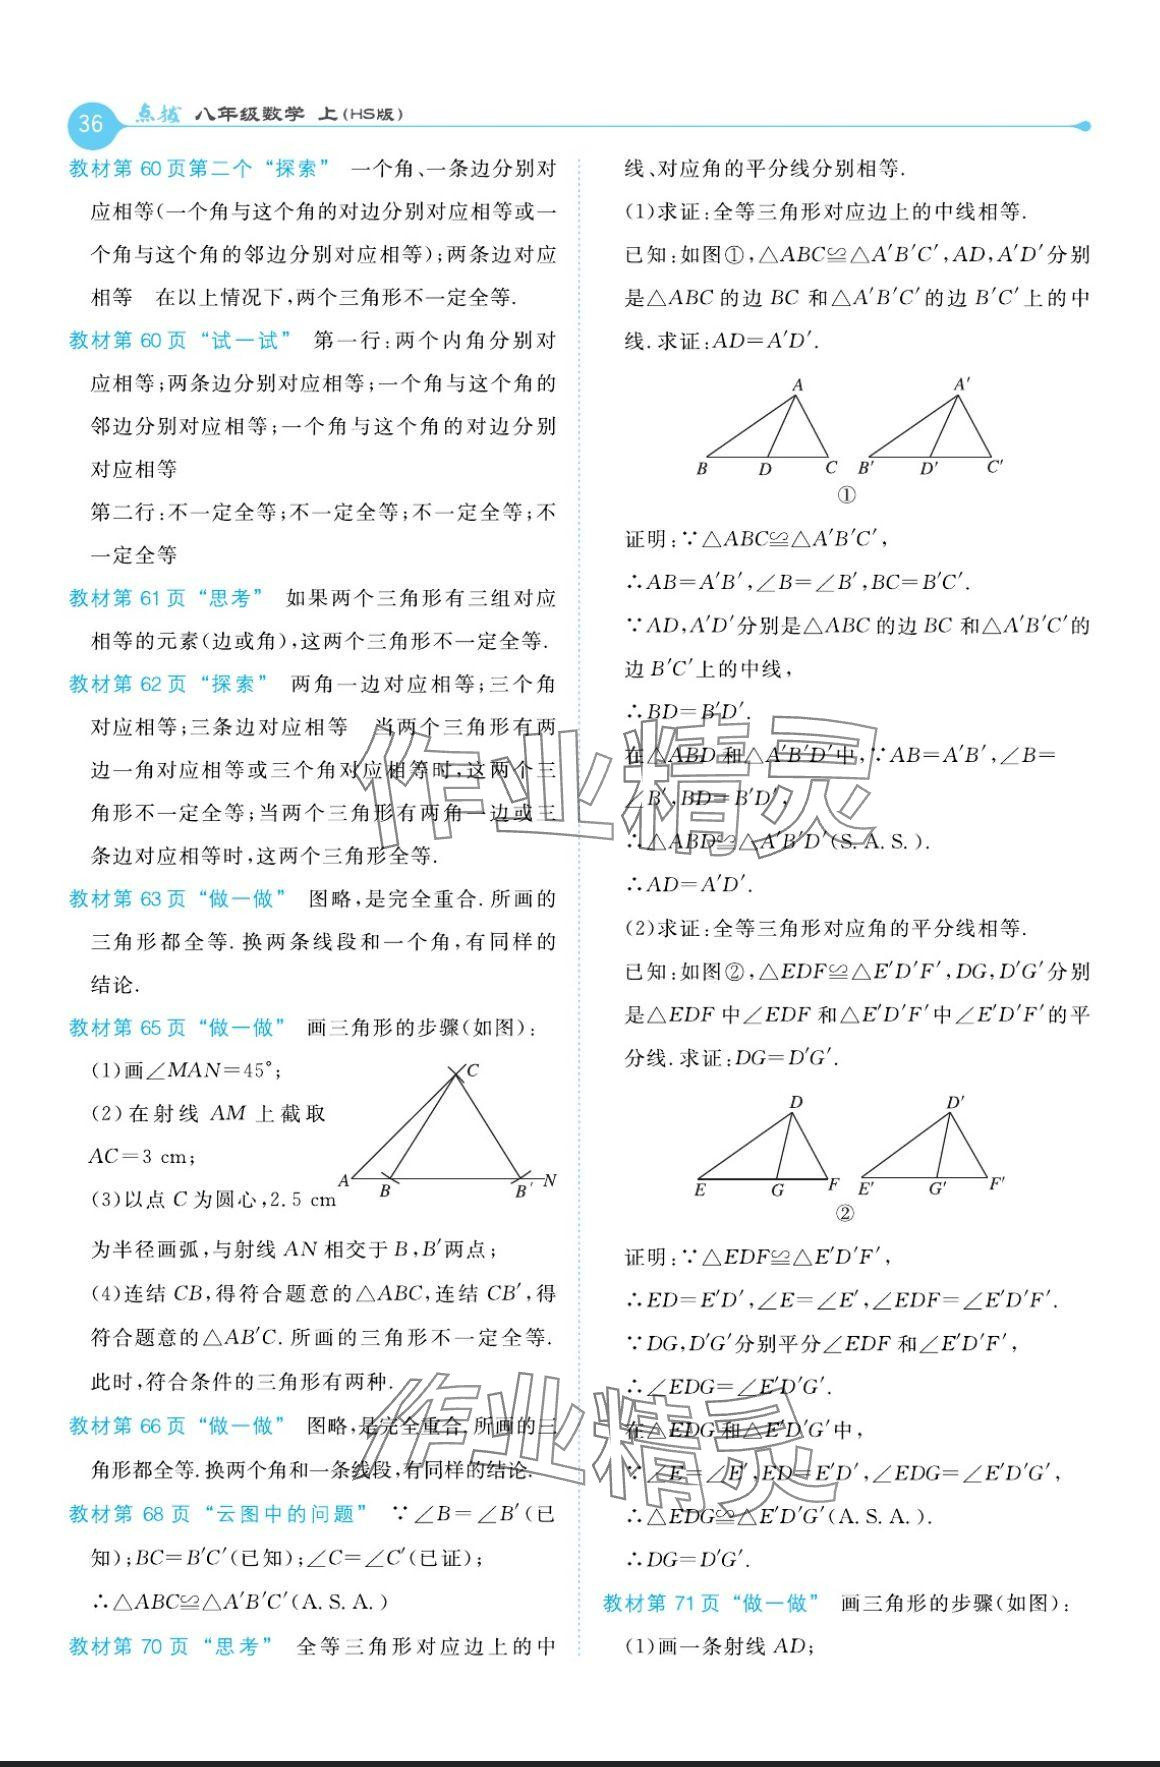 36 点拨 八年级数学 上(HS版)
教材第 60 页第二个“探索” 一个角、一条边分别对
应相等(一个角与这个角的对边分别对应相等或一
个角与这个角的邻边分别对应相等);两条边对应
相等 在以上情况下,两个三角形不一定全等.
教材第 60 页“试一试” 第一行:两个内角分别对
应相等;两条边分别对应相等;一个角与这个角的
邻边分别对应相等;一个角与这个角的对边分别
对应相等
第二行:不一定全等;不一定全等;不一定全等;不
一定全等
教材第 61 页“思考” 如果两个三角形有三组对应
相等的元素(边或角),这两个三角形不一定全等.
教材第 62 页“探索” 两角一边对应相等;三个角
对应相等;三条边对应相等 当两个三角形有两
边一角对应相等或三个角对应相等时,这两个三
角形不一定全等;当两个三角形有两角一边或三
条边对应相等时,这两个三角形全等.
教材第 63 页“做一做” 图略,是完全重合.所画的
三角形都全等.换两条线段和一个角,有同样的
结论.
教材第 65 页“做一做” 画三角形的步骤(如图):
(1)画∠MAN=45°;
(2)在射线 AM 上截取
AC=3 cm;
(3)以点 C 为圆心,2.5 cm
C
A
B
B′
N
为半径画弧,与射线 AN 相交于 B,B′两点;
(4)连结 CB,得符合题意的△ABC,连结 CB′,得
符合题意的△AB′C.所画的三角形不一定全等.
此时,符合条件的三角形有两种.
教材第 66 页“做一做” 图略,是完全重合.所画的三
角形都全等.换两个角和一条线段,有同样的结论.
教材第 68 页“云图中的问题” ∵∠B=∠B′(已
知);BC=B′C′(已知);∠C=∠C′(已证);
∴△ABC≌△A′B′C′(A.S.A.)
教材第 70 页“思考” 全等三角形对应边上的中
线、对应角的平分线分别相等.
(1)求证:全等三角形对应边上的中线相等.
已知:如图①,△ABC≌△A′B′C′,AD,A′D′分别
是△ABC 的边 BC 和△A′B′C′的边 B′C′上的中
线.求证:AD=A′D′.
A A′
B D C B′ D′ C′
①
证明:∵△ABC≌△A′B′C′,
∴AB=A′B′,∠B=∠B′,BC=B′C′.
∵AD,A′D′分别是△ABC 的边 BC 和△A′B′C′的
边 B′C′上的中线,
∴BD=B′D′.
在△ABD 和△A′B′D′中,∵AB=A′B′,∠B=
∠B′,BD=B′D′,
∴△ABD≌△A′B′D′(S.A.S.).
∴AD=A′D′.
(2)求证:全等三角形对应角的平分线相等.
已知:如图②,△EDF≌△E′D′F′,DG,D′G′分别
是△EDF 中∠EDF 和△E′D′F′中∠E′D′F′的平
分线.求证:DG=D′G′.
D D′
E G F E′ G′ F′
②
证明:∵△EDF≌△E′D′F′,
∴ED=E′D′,∠E=∠E′,∠EDF=∠E′D′F′.
∵DG,D′G′分别平分∠EDF 和∠E′D′F′,
∴∠EDG=∠E′D′G′.
在△EDG 和△E′D′G′中,
∵∠E=∠E′,ED=E′D′,∠EDG=∠E′D′G′,
∴△EDG≌△E′D′G′(A.S.A.).
∴DG=D′G′.
教材第 71 页“做一做” 画三角形的步骤(如图):
(1)画一条射线 AD;
作业精灵
作业精灵